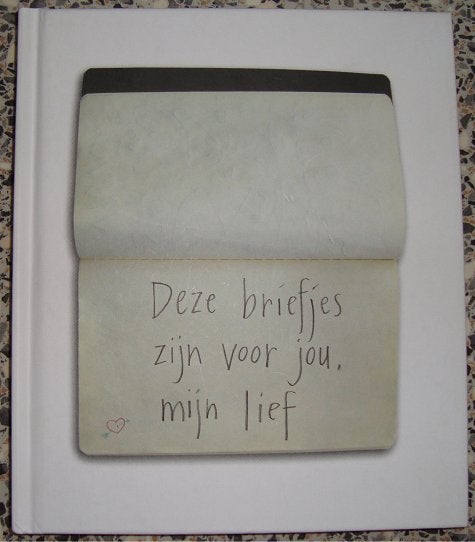 Deze briefjes
zijn voor jou,
mijn lief